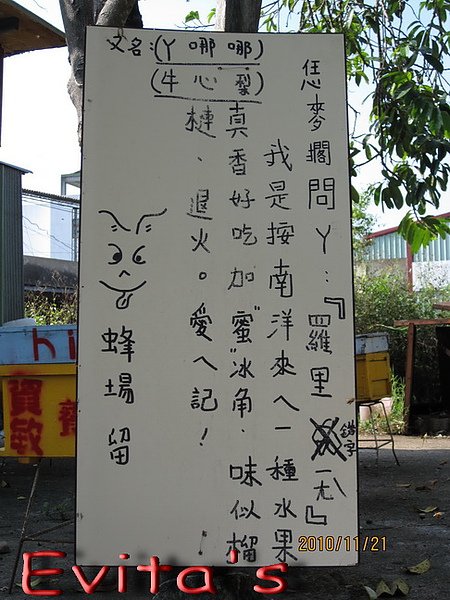 恁麥擱問ㄚ:『羅里ㄧㄤˋ』
錯字
我是按南洋來ㄟ一種水果
真香好吃加"蜜"冰角.味似榴
槤、退火。愛ㄟ記!
!
文名:(ㄚ哪哪)
(牛心
蜂場留
hi
敏
2010/11/21
Evita's